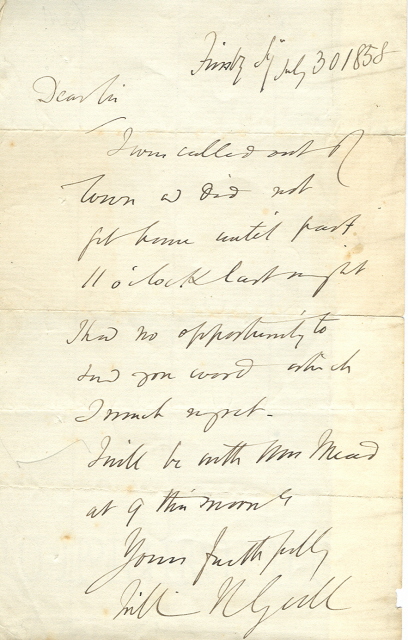 Finsby Sq July 30 1858
Dear Sir
I was called out of
Town & did not
get home until past
11 o'clock last night
I had no opportunity to
send you word which
I much regret.
I will be with Mrs Mead
at 9 this morng
Yours faithfully
Will